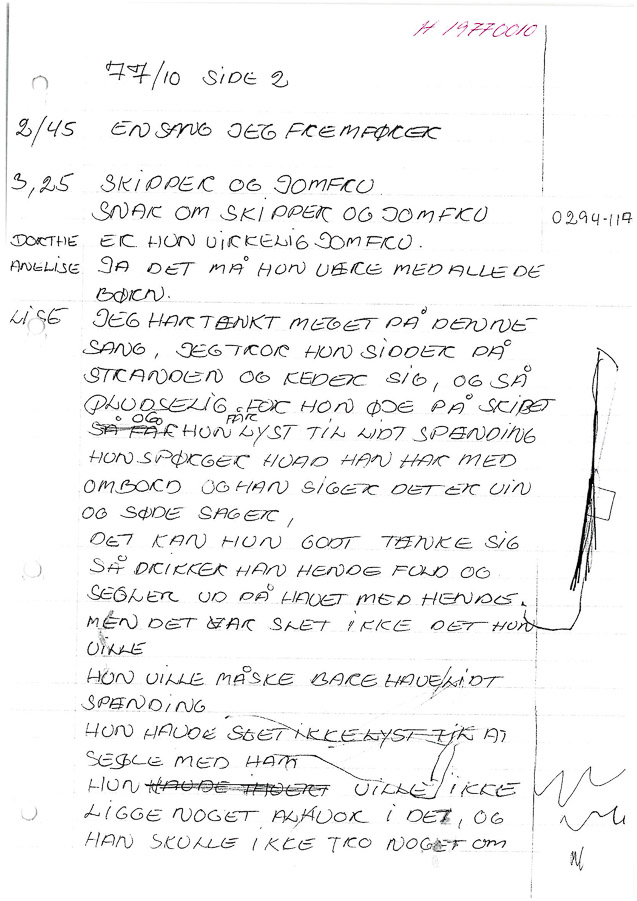 H 19770010
77/10 SIDE 2
2/45 EN SANG JEG FREMFØRER
3,25 SKIPPER OG JOMFRU
SNAK OM SKIPPER OG JOMFRU 0294-117
DORTHE ER HUN VIRKELIG JOMFRU.
ANELISE JA DET MÅ HUN VÆRE MED ALLE DE
BØRN.
LISE JEG HAR TÆNKT MEGET PÅ DENNE
SANG, JEG TROR HUN SIDDER PÅ
STRANDEN OG KEDER SIG, OG SÅ
PLUDSELIG FOR HUN ØJE PÅ SKIBET
SÅ FÅR OG FÅR HUN LYST TIL LIDT SPÆNDING
HUN SPØRGER HVAD HAN HAR MED
OMBORD OG HAN SIGER DET ER VIN
OG SØDE SAGER,
DET KAN HUN GODT TÆNKE SIG
SÅ DRIKKER HAN HENDE FULD OG
SEJLER UD PÅ HAVET MED HENDE.
MEN DET VAR SLET IKKE DET HUN
VILLE
HUN VILLE MÅSKE BARE HAVE LIDT
SPÆNDING
HUN HAVDE SLET IKKE LYST TIL AT
SEJLE MED HAM
HUN HAVDE VILLE IKKE
LIGGE NOGET ALVOR I DET, OG
HAN SKULLE IKKE TRO NOGET OM